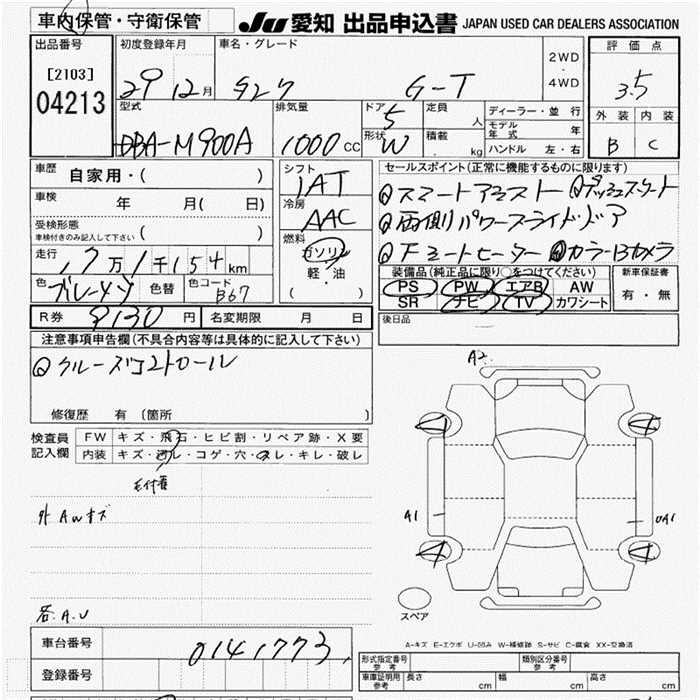 車内保管・守衛保管
JU 愛知 出品申込書 JAPAN USED CAR DEALERS ASSOCIATION
出品番号
[2103]
04213
初度登録年月
29 12月
車名・グレード
タンク G-T
2WD
・
4WD
評価点
3.5
外装 内装
B C
型式
DBA-M900A
排気量
1000 CC
ドア 5
形状 W
定員 人
積載 kg
ディーラー・並行
モデル年式 年
ハンドル 左・右
車歴 自家用・( )
車検 年 月( 日)
受検形態
車検付きのみ記入して下さい ( )
走行 17万1千154km
色 グレーメタ 色替 色コード B67
シフト
IAT
冷房
AAC
燃料
ガソリン
軽・油
( )
セールスポイント(正常に機能するものに限ります)
スマートアシスト プッシュスタート
両側パワースライドドア
下ミートヒーター カラーBカメラ
装備品(純正品に限り○をつけてください)
PS PW エアB AW
SR ナビ TV カワシート
新車保証書
有・無
後日品
R券 9130円 名変期限 月 日
注意事項申告欄(不具合内容等は具体的に記入して下さい)
クルーズコントロール
修復歴 有 (箇所 )
検査員
記入欄
FW キズ・飛石・ヒビ割・リペア跡・X要
内装 キズ・汚レ・コゲ・穴・スレ・キレ・破レ
毛付着
外 AWキズ
各A.U
A2
A1
UA1
スペア
A-キズ E-エクボ U-凹み W-補修跡 S-サビ C-腐食 XX-交換済
車台番号 0141773
登録番号
形式指定番号 参考
類別区分番号 参考
車庫証明用 参考 長さ cm 幅 cm 高さ cm